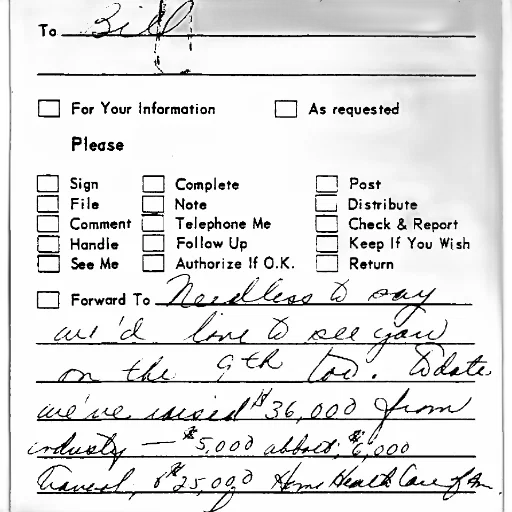 To Bill
For Your Information As requested
Please
Sign Complete Post
File Note Distribute
Comment Telephone Me Check & Report
Handle Follow Up Keep If You Wish
See Me Authorize If O.K. Return
Forward To Needless to say
we'd love to see you
on the 9th too. Todate
we've raised $36,000 from
industry — $5,000 abbott, $6,000
Travenol, & $25,000 Home Health Care of Am.